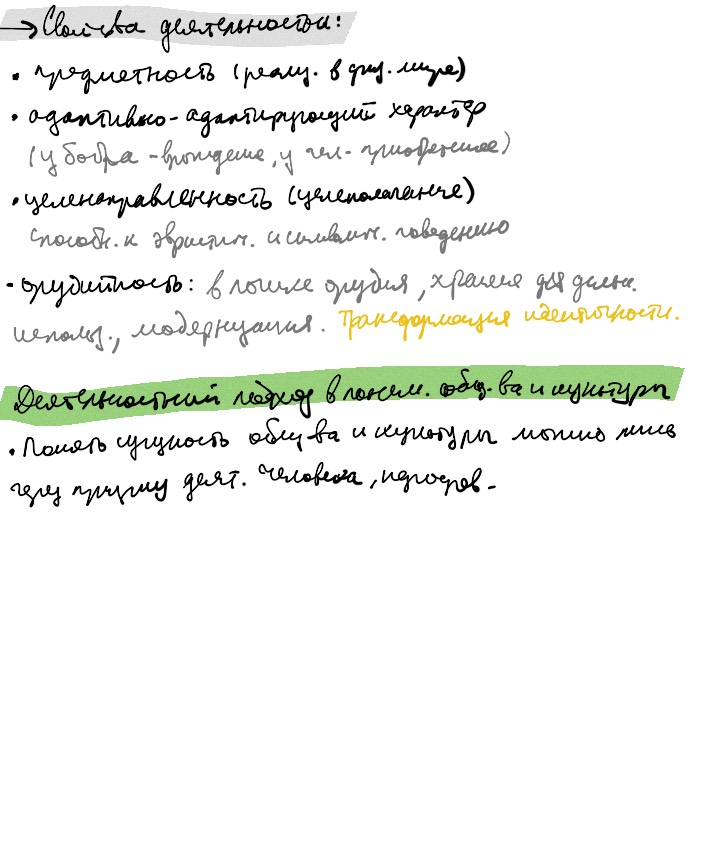 → Свойства деятельности:
• предметность (реализ. в физ. мире)
• адаптивно-адаптирующий характер
(у бобра - врожденное, у чел - приобретенное)
• целенаправленность (целеполагание)
способн. к эвристич. и символич. поведению
• орудийность: в поиске орудия, хранения для дальн.
использ., модернизация. Трансформация идентичности.
Деятельностный подход в поним. общ-ва и культуры
• Понять сущность общ-ва и культуры можно лишь
через призму деят. человека,